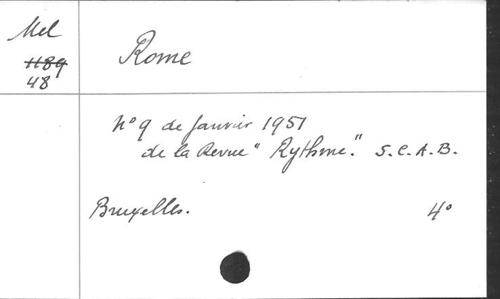 Mel
1189
48
Rome
N° 9 de Janvier 1951
de la Revue "Rythme." S.C.A.B.
Bruxelles.
4°